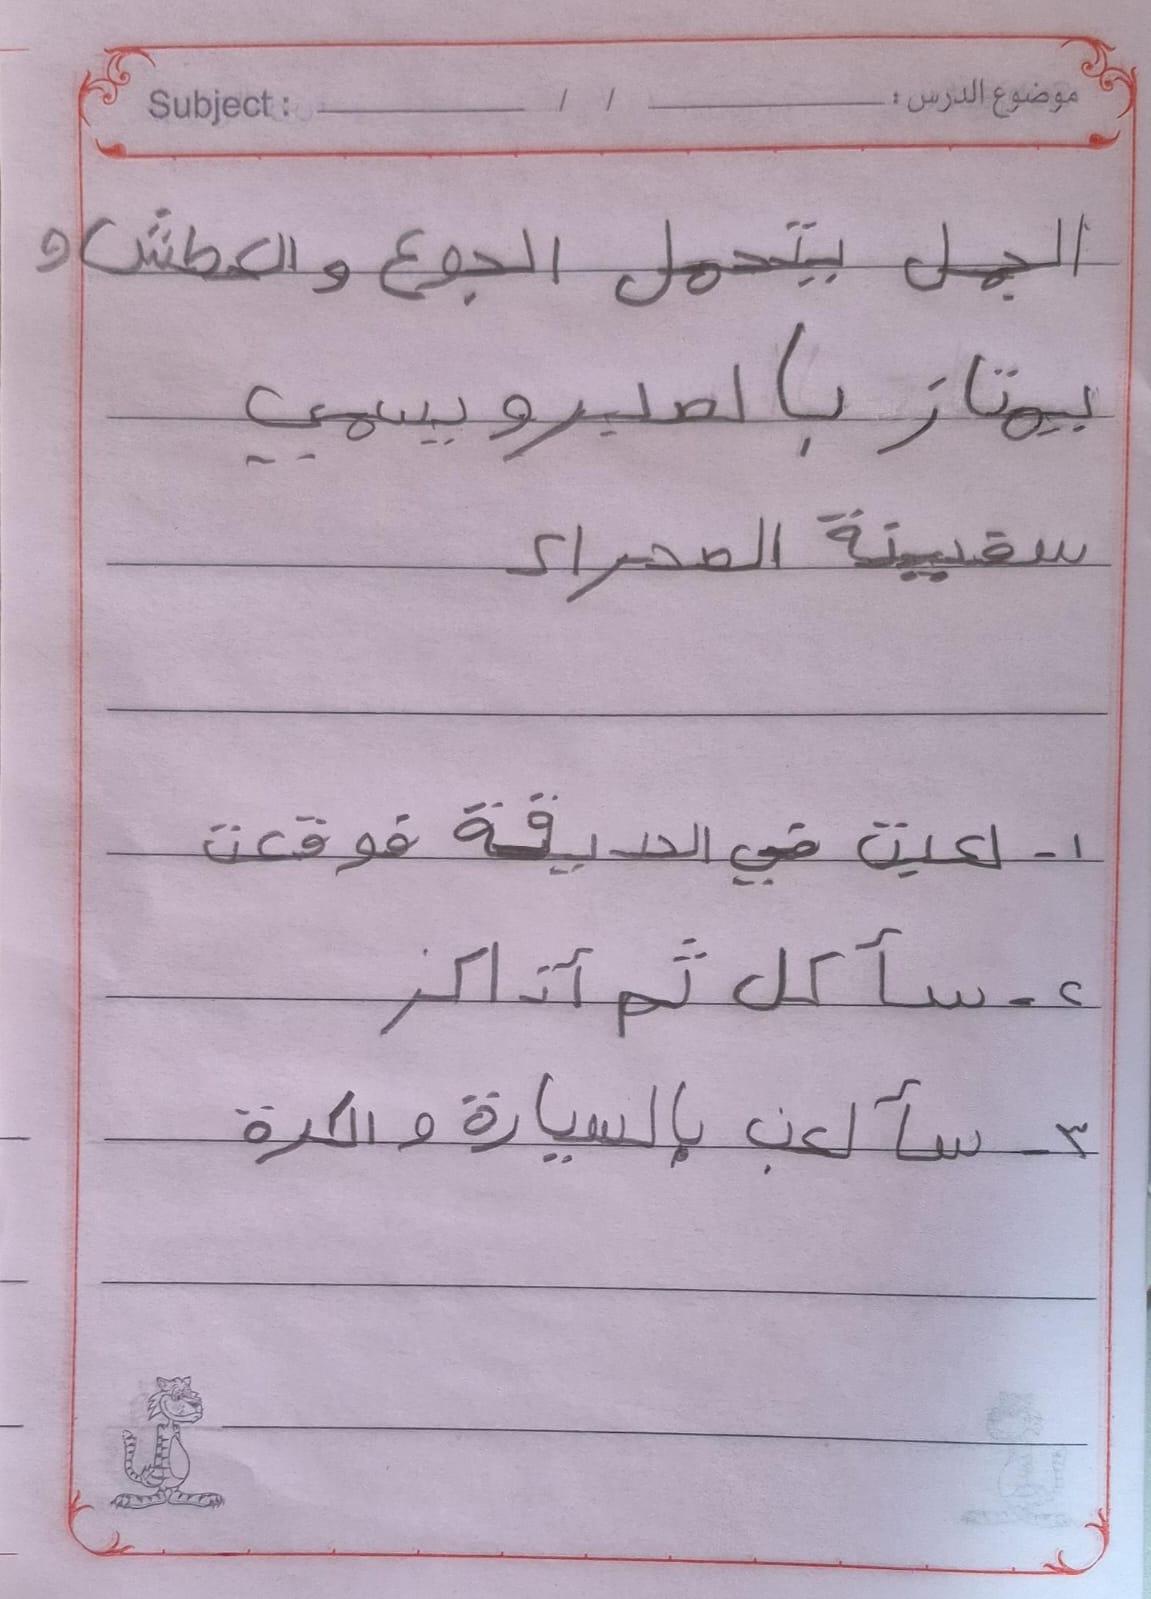 موضوع الدرس : / / Subject :
الجمل يتحمل الجوع والعطش و
يمتاز بالصبر ويسمي
سفينة الصحراء
١- لعبت في الحديقة فوقعت
٢- سأكل ثم أذاكر
٣- سألعب بالسيارة والكرة